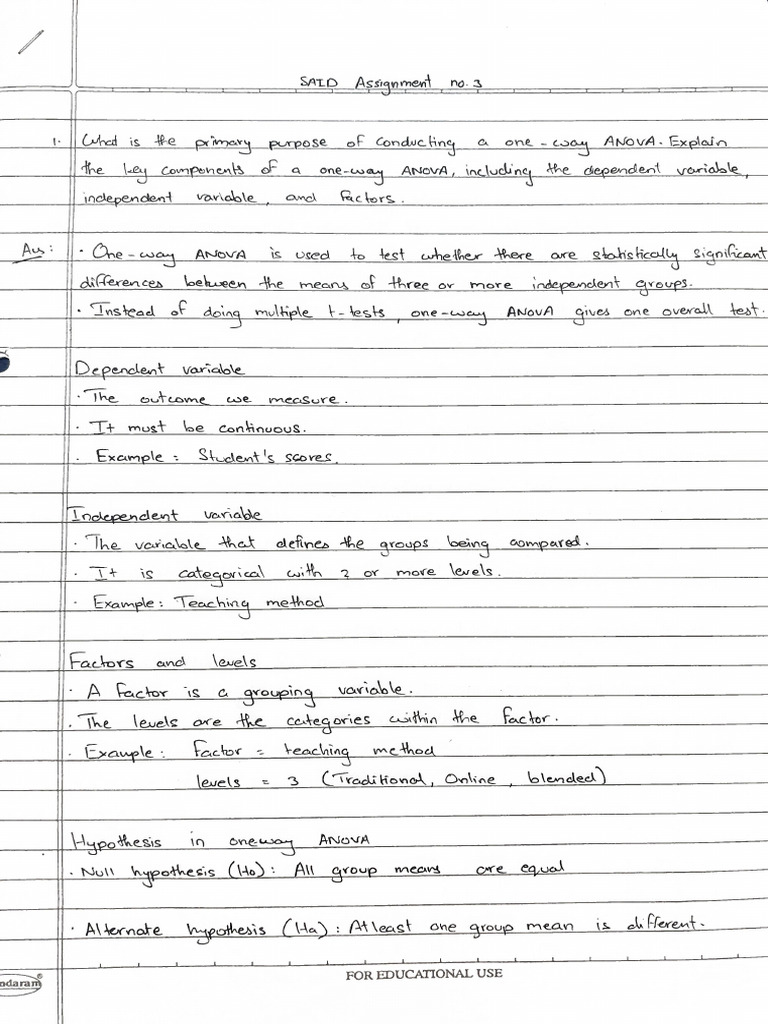 SAID Assignment no. 3
1. What is the primary purpose of conducting a one-way ANOVA. Explain
the key components of a one-way ANOVA, including the dependent variable,
independent variable, and factors.
Ans: • One-way ANOVA is used to test whether there are statistically significant
differences between the means of three or more independent groups.
• Instead of doing multiple t-tests, one-way ANOVA gives one overall test.
Dependent variable
• The outcome we measure.
• It must be continuous.
• Example: Student's scores.
Independent variable
• The variable that defines the groups being compared.
• It is categorical with 2 or more levels.
• Example: Teaching method
Factors and levels
• A factor is a grouping variable.
• The levels are the categories within the factor.
• Example: Factor = teaching method
levels = 3 (Traditional, Online, blended)
Hypothesis in oneway ANOVA
• Null hypothesis (Ho): All group means are equal
• Alternate hypothesis (Ha): Atleast one group mean is different.
FOR EDUCATIONAL USE
ndaram®